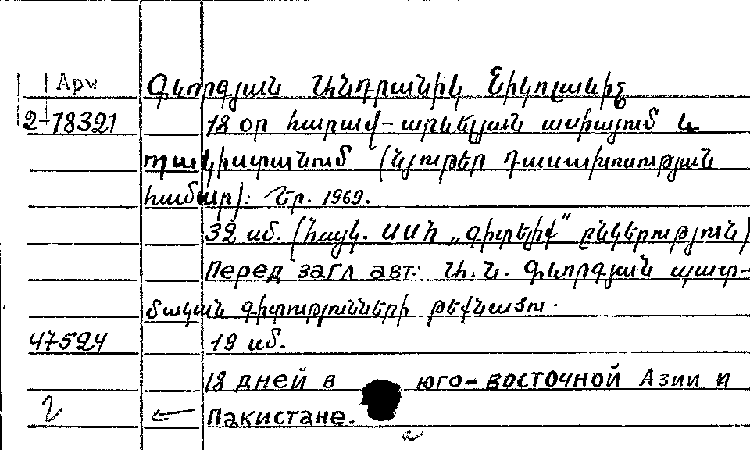 Арм Գևորգյան Անդրանիկ Նիկոլաևիչ
2-78321 18 օր հարավ-արևելյան ասիայում և
պակիստանում (նյութեր դասախոսության
համար): Եր. 1969.
32 սմ. (հայկ. ՍՍՀ „գիտելիք“ ընկերություն)
Перед загл авт.: Ա. Ն. Գևորգյան պատ-
մական գիտությունների թեկնածու.
47524 19 սմ.
18 дней в юго-восточной Азии и
2 Пакистане.